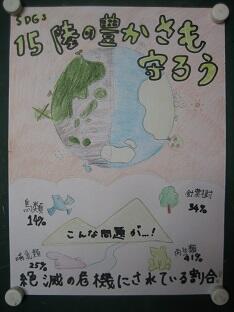 SDGs
15 陸の豊かさも
守ろう
鳥類
14%
針葉樹
34%
こんな問題が…!
哺乳類
25%
両生類
41%
絶滅の危機にされている割合